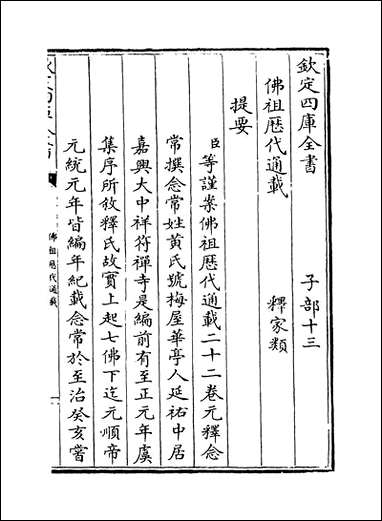 欽定四庫全書 子部十三
佛祖歷代通載 釋家類
提要
臣等謹案佛祖歷代通載二十二卷元釋念
常撰念常姓黄氏號梅屋華亭人延祐中居
嘉興大中祥符禪寺是編前有至正元年虞
集序所敘釋氏故實上起七佛下迄元順帝
元統元年皆編年紀載念常於至治癸亥嘗
佛祖歷代通載